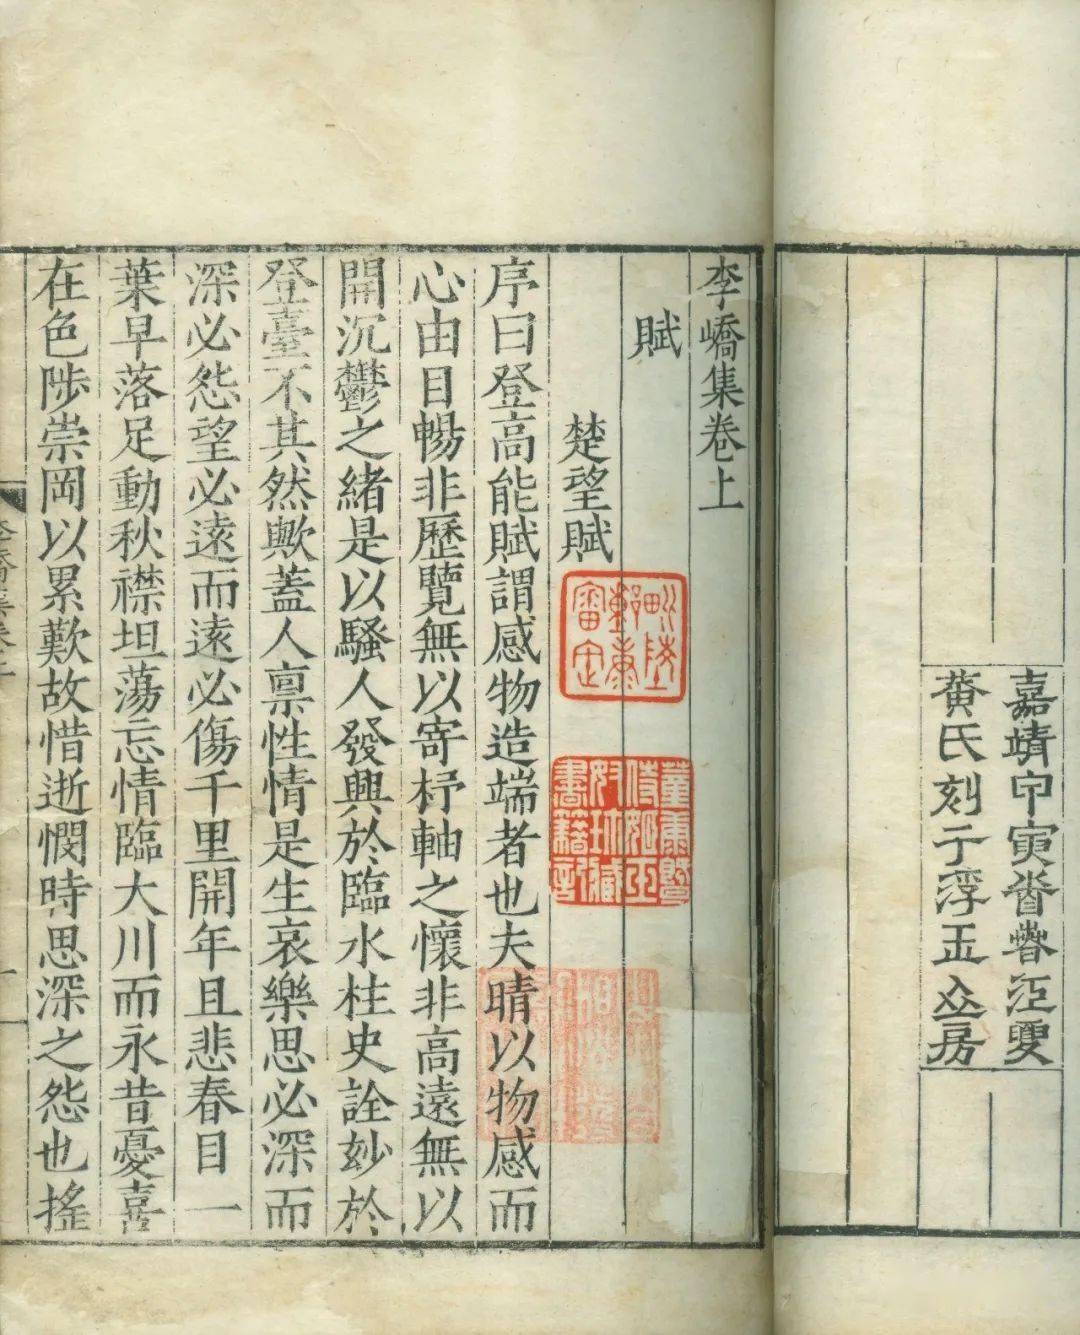 嘉靖甲寅首春江夏
黃氏刻于浮玉山房
李嶠集卷上
賦
楚望賦
毗陵
董康
審定
董康暨
侍姬玉
奴珍藏
書籍記
序曰登高能賦謂感物造端者也夫晴以物感而
心由目暢非歷覽無以寄杼軸之懷非高遠無以
開沉鬱之緒是以騷人發興於臨水柱史詮妙於
登臺不其然歟蓋人稟性情是生哀樂思必深而
深必怨望必遠而遠必傷千里開年且悲春目一
葉早落足動秋襟坦蕩忘情臨大川而永昔憂喜
在色陟崇岡以累歎故惜逝憫時思深之怨也搖